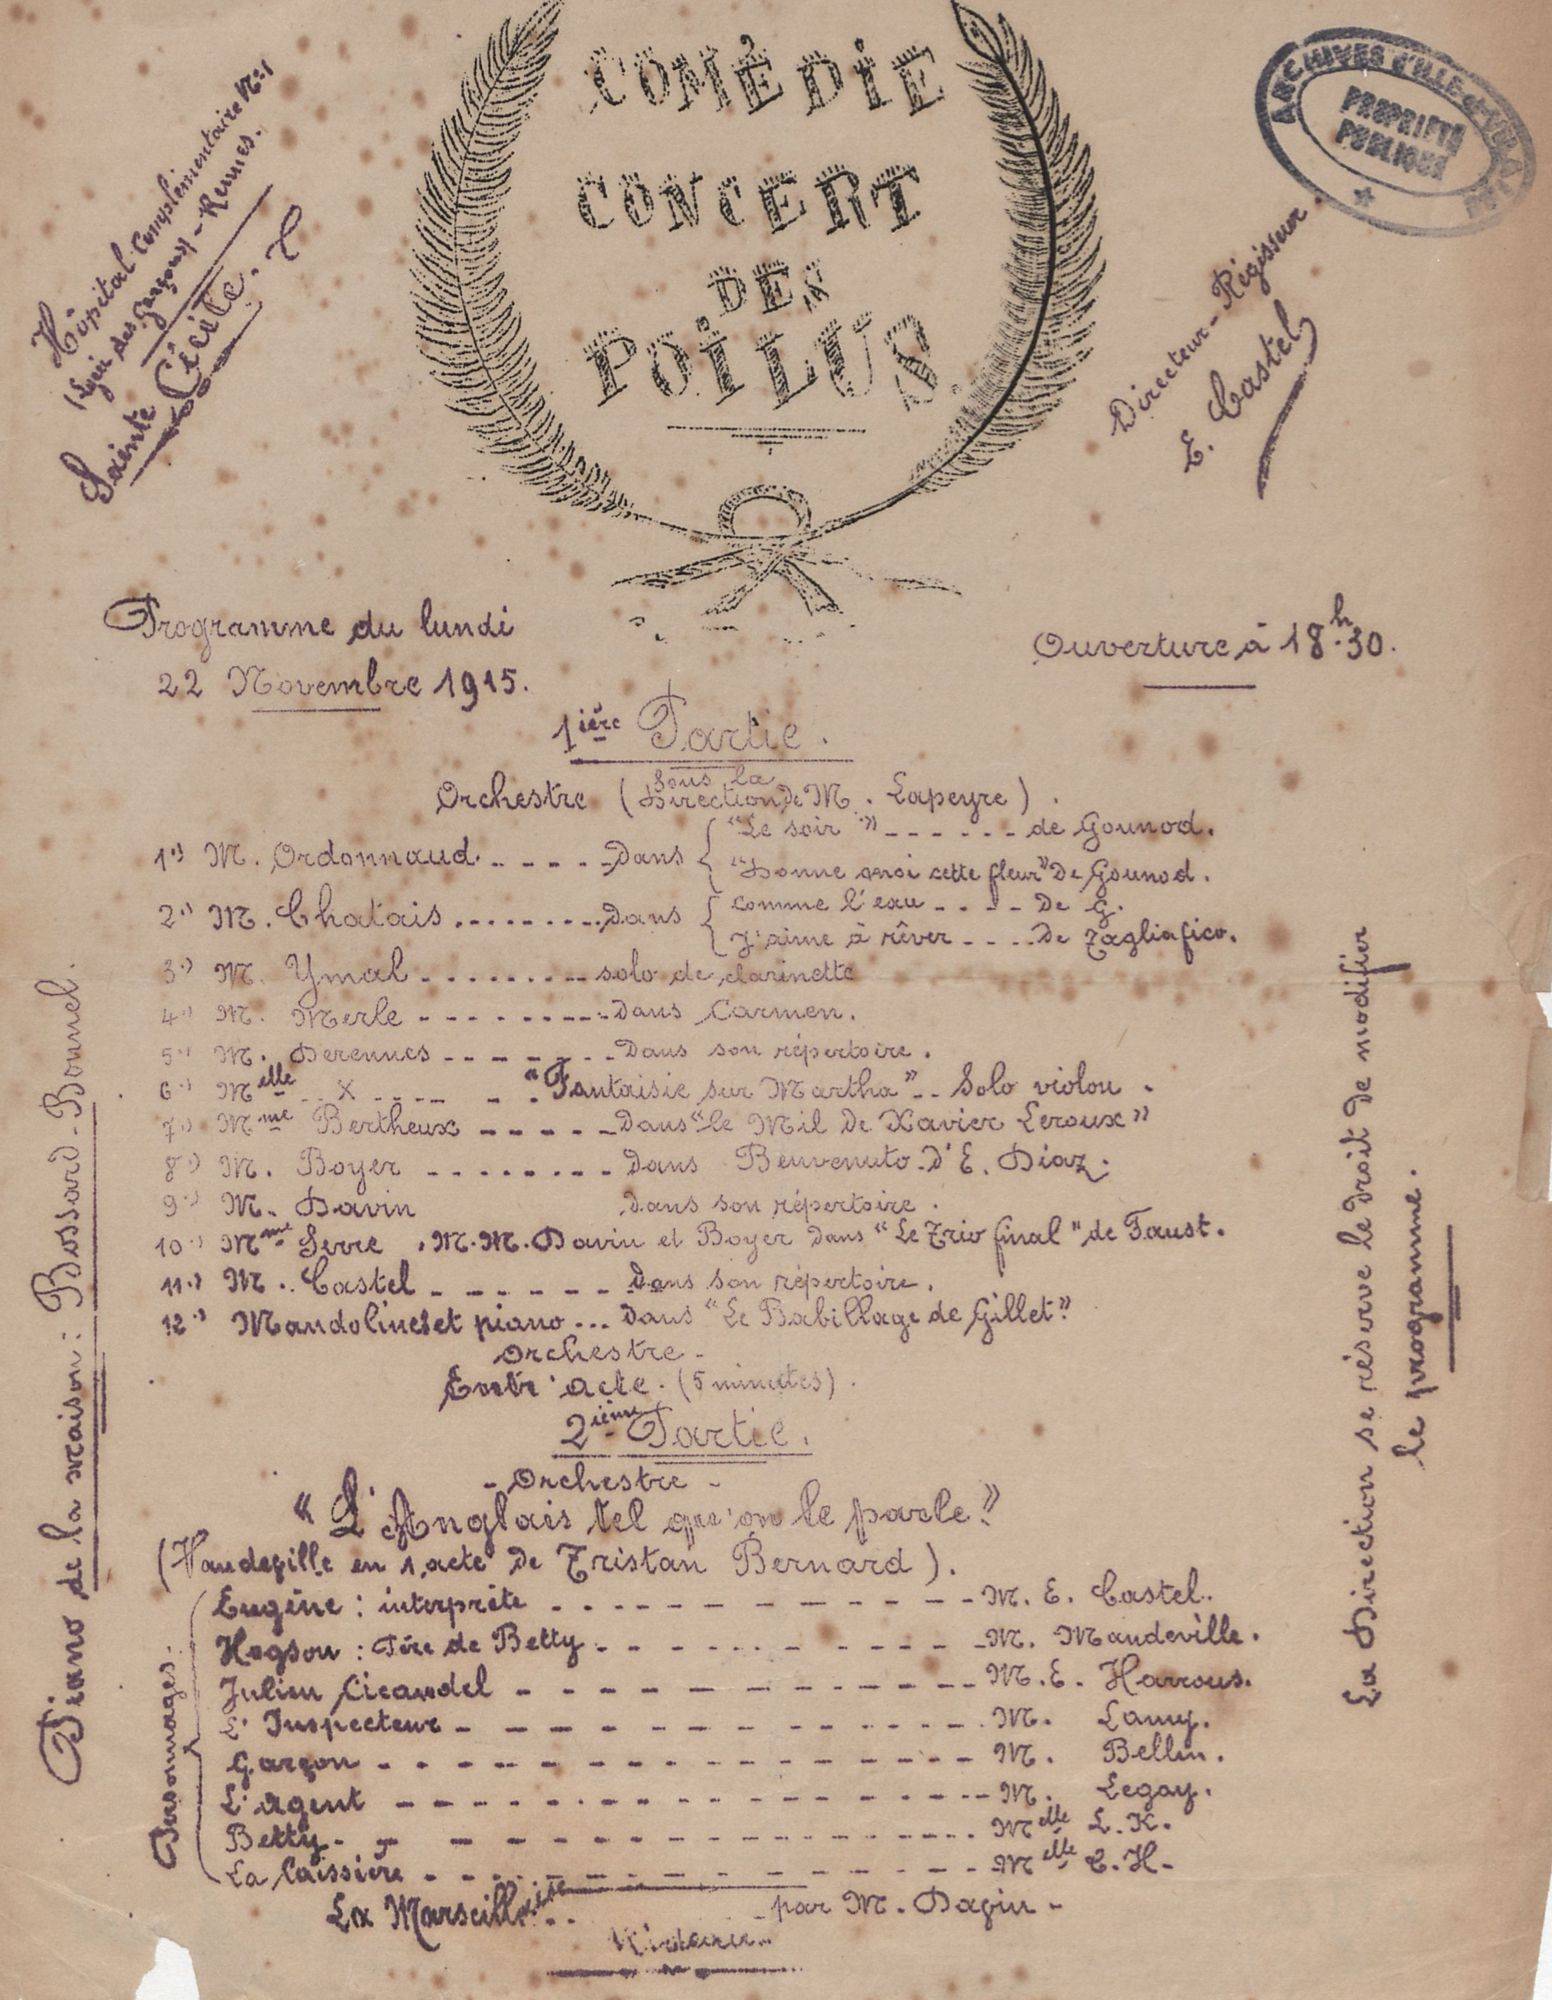 COMÉDIE
CONCERT
DES
POILUS.
Hôpital Complémentaire N°:1
(Lycée des Garçons) - Rennes.
Sainte Cécile.
ARCHIVES d'ILLE-et-VILAINE
PROPRIÉTÉ
PUBLIQUE
Directeur-Régisseur.
E. Castel
Programme du lundi
22 Novembre 1915.
Ouverture à 18h.30.
1ière Partie.
Orchestre (sous la Direction de M. Lapeyre).
1°) M. Ordonnaud. - - - - - Dans { "Le soir" - - - - - - de Gounod.
"Donne moi cette fleur" De Gounod.
2°) M. Chatais . - - - - - - - - Dans { Comme l'eau - - - - De G.
J'aime à rêver - - - - De Tagliafico.
3°) M. Ymal - - - - - - - - - solo de clarinette
4°) M. Merle - - - - - - - - - Dans Carmen.
5°) M. Derennes - - - - - - - Dans son répertoire.
6°) Melle - - X - - - - - - "Fantaisie sur Martha" - - Solo violon.
7°) Mme Bertheux - - - - - Dans "le Nil de Xavier Leroux"
8°) M. Boyer - - - - - - - - Dans Benvenuto. D'E. Diaz.
9°) M. Davin Dans son répertoire.
10°) Mme Serre, M.M. Davin et Boyer Dans "Le Trio final" de Faust.
11°) M. Castel - - - - - - - Dans son répertoire.
12°) Mandolines et piano - - - Dans "Le Babillage de Gillet"
Orchestre -
Entr'acte. (5 minutes).
2ième Partie.
- Orchestre -
"L'Anglais tel qu'on le parle"
(Vaudeville en 1 acte De Tristan Bernard).
Personnages.
Eugène : interprète - - - - - - - - - - - - M. E. Castel.
Hogson : Père de Betty - - - - - - - - - - M. Mandeville.
Julien Cicandel - - - - - - - - - - - - M. E. Harrous.
L'Inspecteur - - - - - - - - - - - - - M. Lamy.
Garçon - - - - - - - - - - - - - - - M. Bellin.
L'agent - - - - - - - - - - - - - - - M. Legay.
Betty - - - - - - - - - - - - - - - Melle L. K.
La Caissière - - - - - - - - - - - - - Melle C. H.
La Marseillaise - - par M. Davin -
Piano de la maison : Bossard-Bonnel.
La Direction se réserve le droit de modifier
le programme.